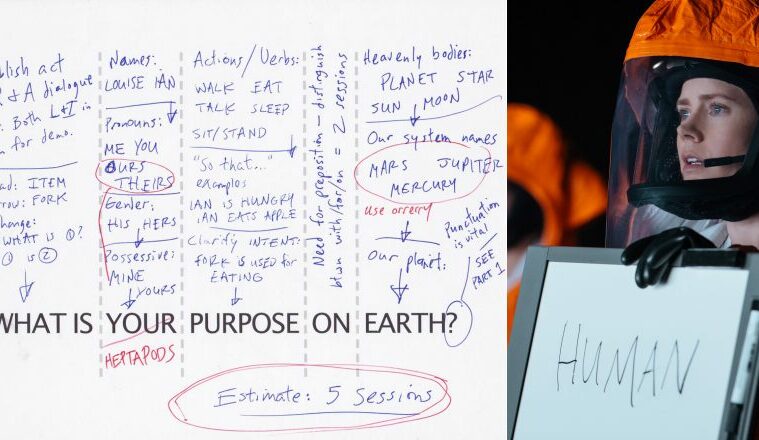 blish act
+ A dialogue
. Both L+I in
n for demo.
ad: ITEM
row: FORK
hange:
WHAT IS ①?
① is ②
Names:
LOUISE IAN
Pronouns:
ME YOU
OURS
THEIRS
Gender:
HIS HERS
Possessive:
MINE
YOURS
Actions/Verbs:
WALK EAT
TALK SLEEP
SIT/STAND
"So that..."
examples
IAN IS HUNGRY
IAN EATS APPLE
Clarify INTENT:
FORK IS USED FOR
EATING
Need for preposition - distinguish
btwn with/for/on = 2 sessions
Heavenly bodies:
PLANET STAR
SUN MOON
Our system names
MARS JUPITER
MERCURY
use orrery
Our planet:
Punctuation
is vital
SEE
PART 1
WHAT IS YOUR PURPOSE ON EARTH?
HEPTAPODS
Estimate: 5 Sessions
HUMAN